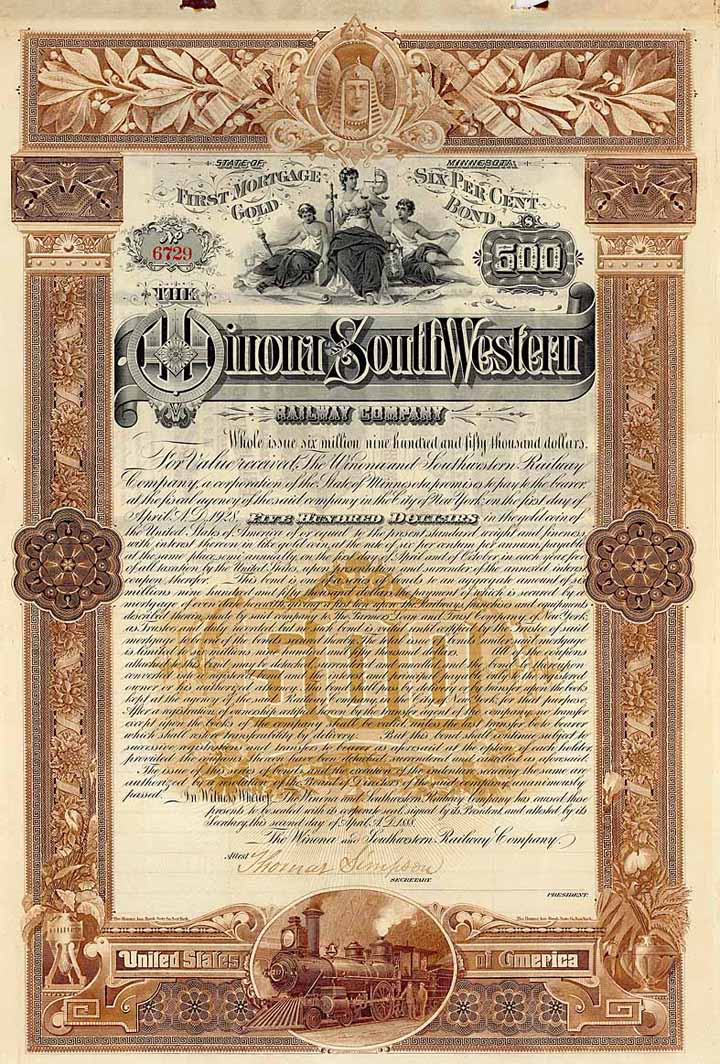 STATE OF MINNESOTA
FIRST MORTGAGE SIX PER CENT
GOLD BOND
No 6729 500
THE
Winona and South Western
RAILWAY COMPANY
Whole issue six million nine hundred and fifty thousand dollars.
For Value received, The Winona and Southwestern Railway
Company, a corporation of the State of Minnesota, promises to pay to the bearer
at the fiscal agency of the said company in the City of New York, on the first day of
April, A.D. 1928, FIVE HUNDRED DOLLARS in the gold coin of
the United States of America of or equal to the present standard weight and fineness
with interest thereon in like gold coin, at the rate of six per centum per annum, payable
at the same place, semi-annually, on the first days of April and October in each year, free
of all taxation by the United States, upon presentation and surrender of the annexed interest
coupon therefor. This bond is one of a series of bonds to an aggregate amount of six
millions nine hundred and fifty thousand dollars the payment of which is secured by a
mortgage of even date herewith giving a first lien upon the railways, franchises and equipments
described therein, made by said company to The Farmers' Loan and Trust Company of New York,
as Trustee
mortgage
is limited to six millions nine hundred and fifty thousand dollars. All of the coupons
attached to this bond may be
owner or his authorized attorney. This bond shall pass by delivery or by transfer upon the books
kept at the agency of the said Railway Company, in the City of New York, for that purpose.
After a registration of ownership certified hereon by the transfer agent of the company, no transfer
except upon the books of the company shall be valid, unless the last transfer be to bearer
which shall restore transferability by delivery. But this bond shall continue subject to
successive registrations and transfers to bearer as aforesaid at the option of each holder,
provided the coupons hereon have been detached, surrendered and cancelled as aforesaid.
The issue of this series of bonds and the execution of the indenture securing the same are
authorized by a resolution of the Board of Directors of the said company, unanimously
passed. In Witness Whereof, The Winona and Southwestern Railway Company has caused these
presents to be sealed with its corporate seal, signed by its President, and attested by its
Secretary, this second day of April, A.D. 1888.
The Winona and Southwestern Railway Company.
Attest
Thomas Simpson
SECRETARY.
PRESIDENT.
500
United States of America